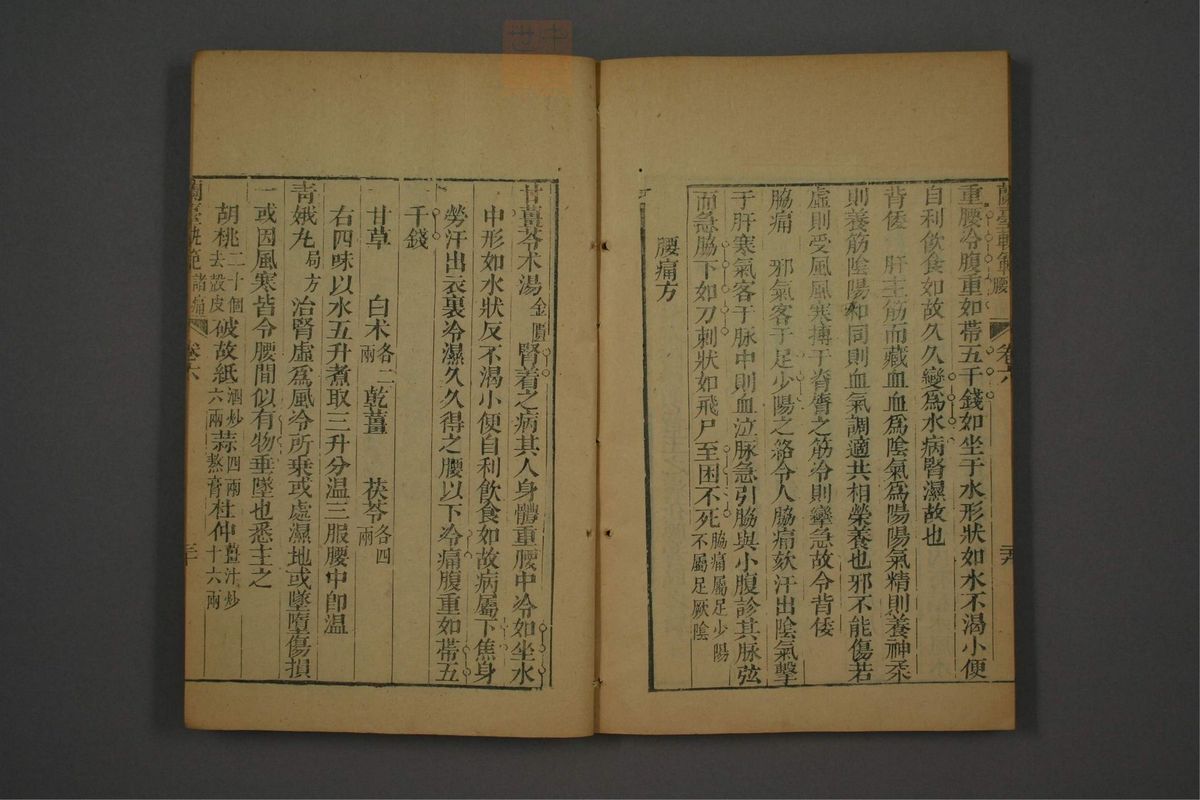 蘭臺軌範 腰 卷六
重腰冷腹重如帶五千錢如坐于水形狀如水不渴小便
自利飲食如故久久變爲水病腎濕故也
背僂 肝主筋而藏血血爲陰氣爲陽陽氣精則養神柔
則養筋陰陽和同則血氣調適共相榮養也邪不能傷若
虛則受風風寒搏于脊膂之筋冷則攣急故令背僂
脇痛 邪氣客于足少陽之絡令人脇痛欬汗出陰氣擊
于肝寒氣客于脉中則血泣脉急引脇與小腹診其脉弦
而急脇下如刀刺狀如飛尸至困不死脇痛屬足少陽不屬足厥陰
腰痛方
甘薑苓术湯金匱腎着之病其人身體重腰中冷如坐水
中形如水狀反不渴小便自利飲食如故病屬下焦身
勞汗出衣裏冷濕久久得之腰以下冷痛腹重如帶五
千錢
甘草 白术各二兩 乾薑 茯苓各四兩
右四味以水五升煮取三升分溫三服腰中卽溫
青娥丸局方治腎虛爲風冷所乘或處濕地或墜墮傷損
一或因風寒皆令腰間似有物垂墜也悉主之
胡桃二十個去殼皮破故紙酒炒六兩蒜四兩熬膏杜仲薑汁炒十六兩
蘭臺軌範 諸痛 卷六 三十